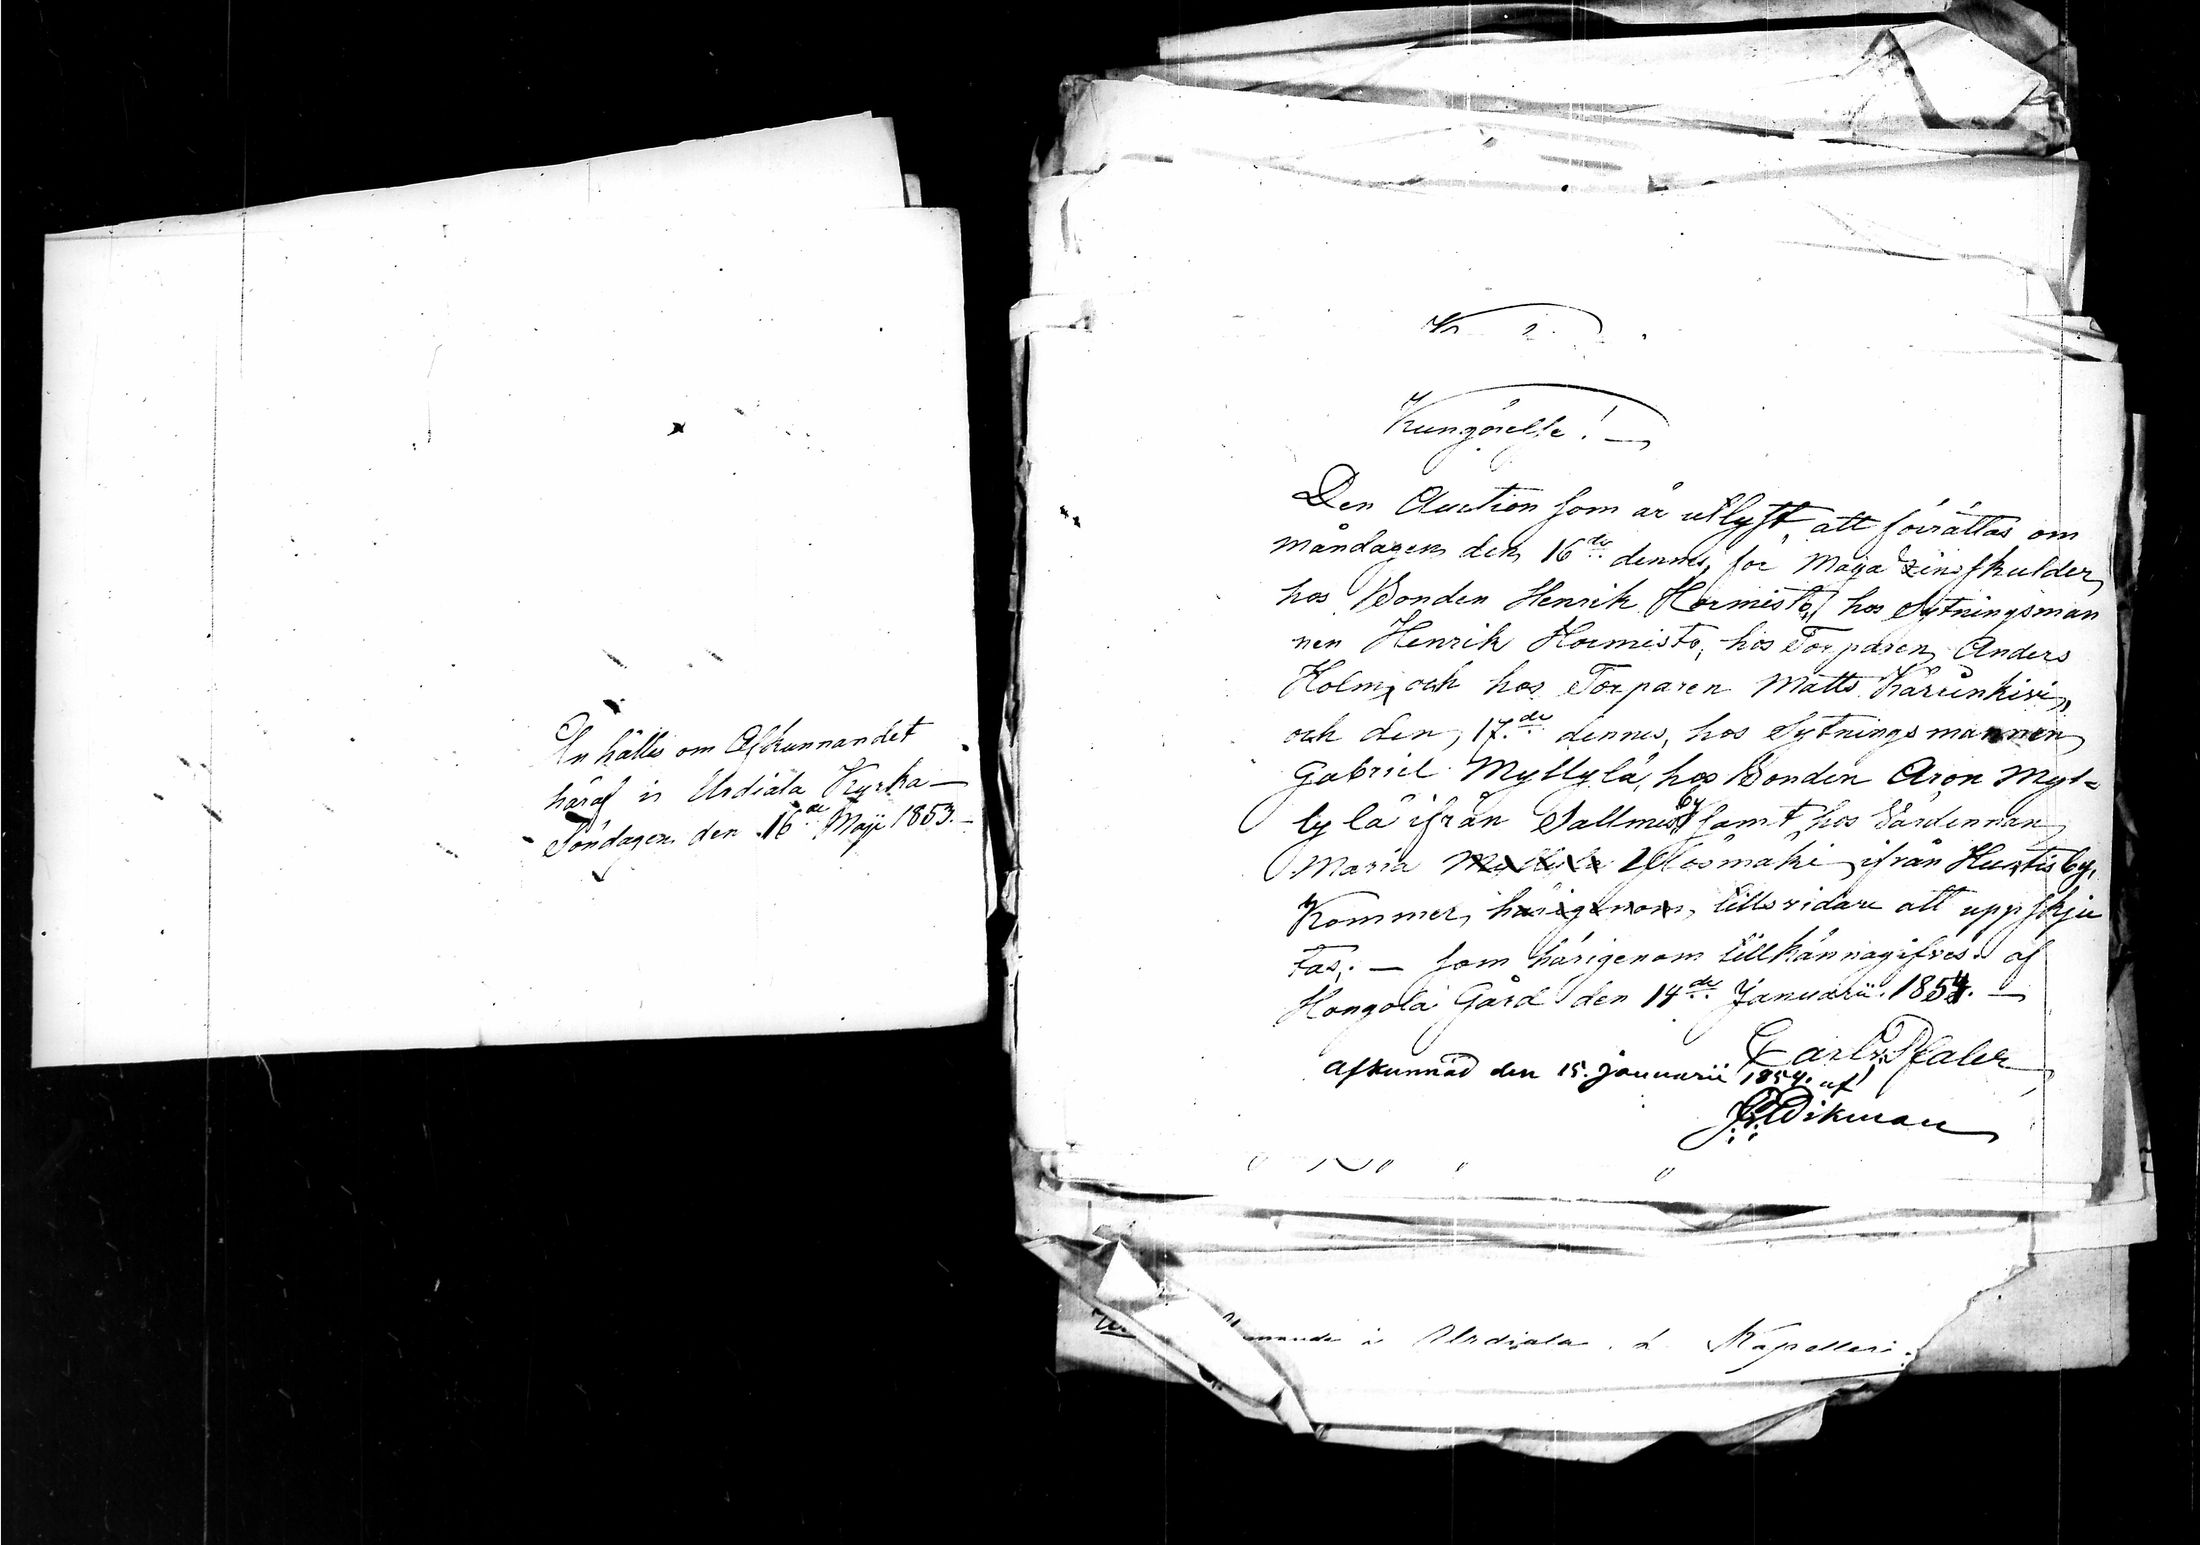 An hålles om Afkunnandet
häraf i Urdiala Kyrka —
Söndagen den 16de Maji 1853. —
No 2.
Kungörelse! —
Den Auction som är utlyst, att förrättas om
måndagen den 16de dennes, för Maja
hos Bonden Henrik Hormisto, hos Sytningsman
nen Henrik Hormisto, hos Torparen Anders
Holm, och hos Torparen Matts
och den 17de dennes, hos Sytningsmannen
Gabriel Myllylä, hos Bonden Aron Myl=
lylä ifrån Sallmis by samt hos Värdinnan
Maria Ylösmäki ifrån Hurtis by,
Kommer, härigenom, tillsvidare att uppskju
tas; — som härigenom tillkännagifves. af
Hongola Gård den 14de Januarii. 1854. —
Carl v. Pfaler
Afkunnad den 15. Januarii 1854. af
Wikman
i Urdiala